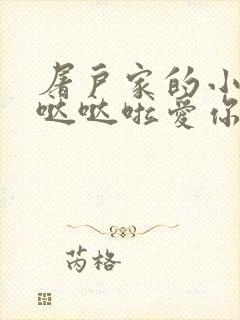 屠户家的小
哒哒啦爱你
芮格